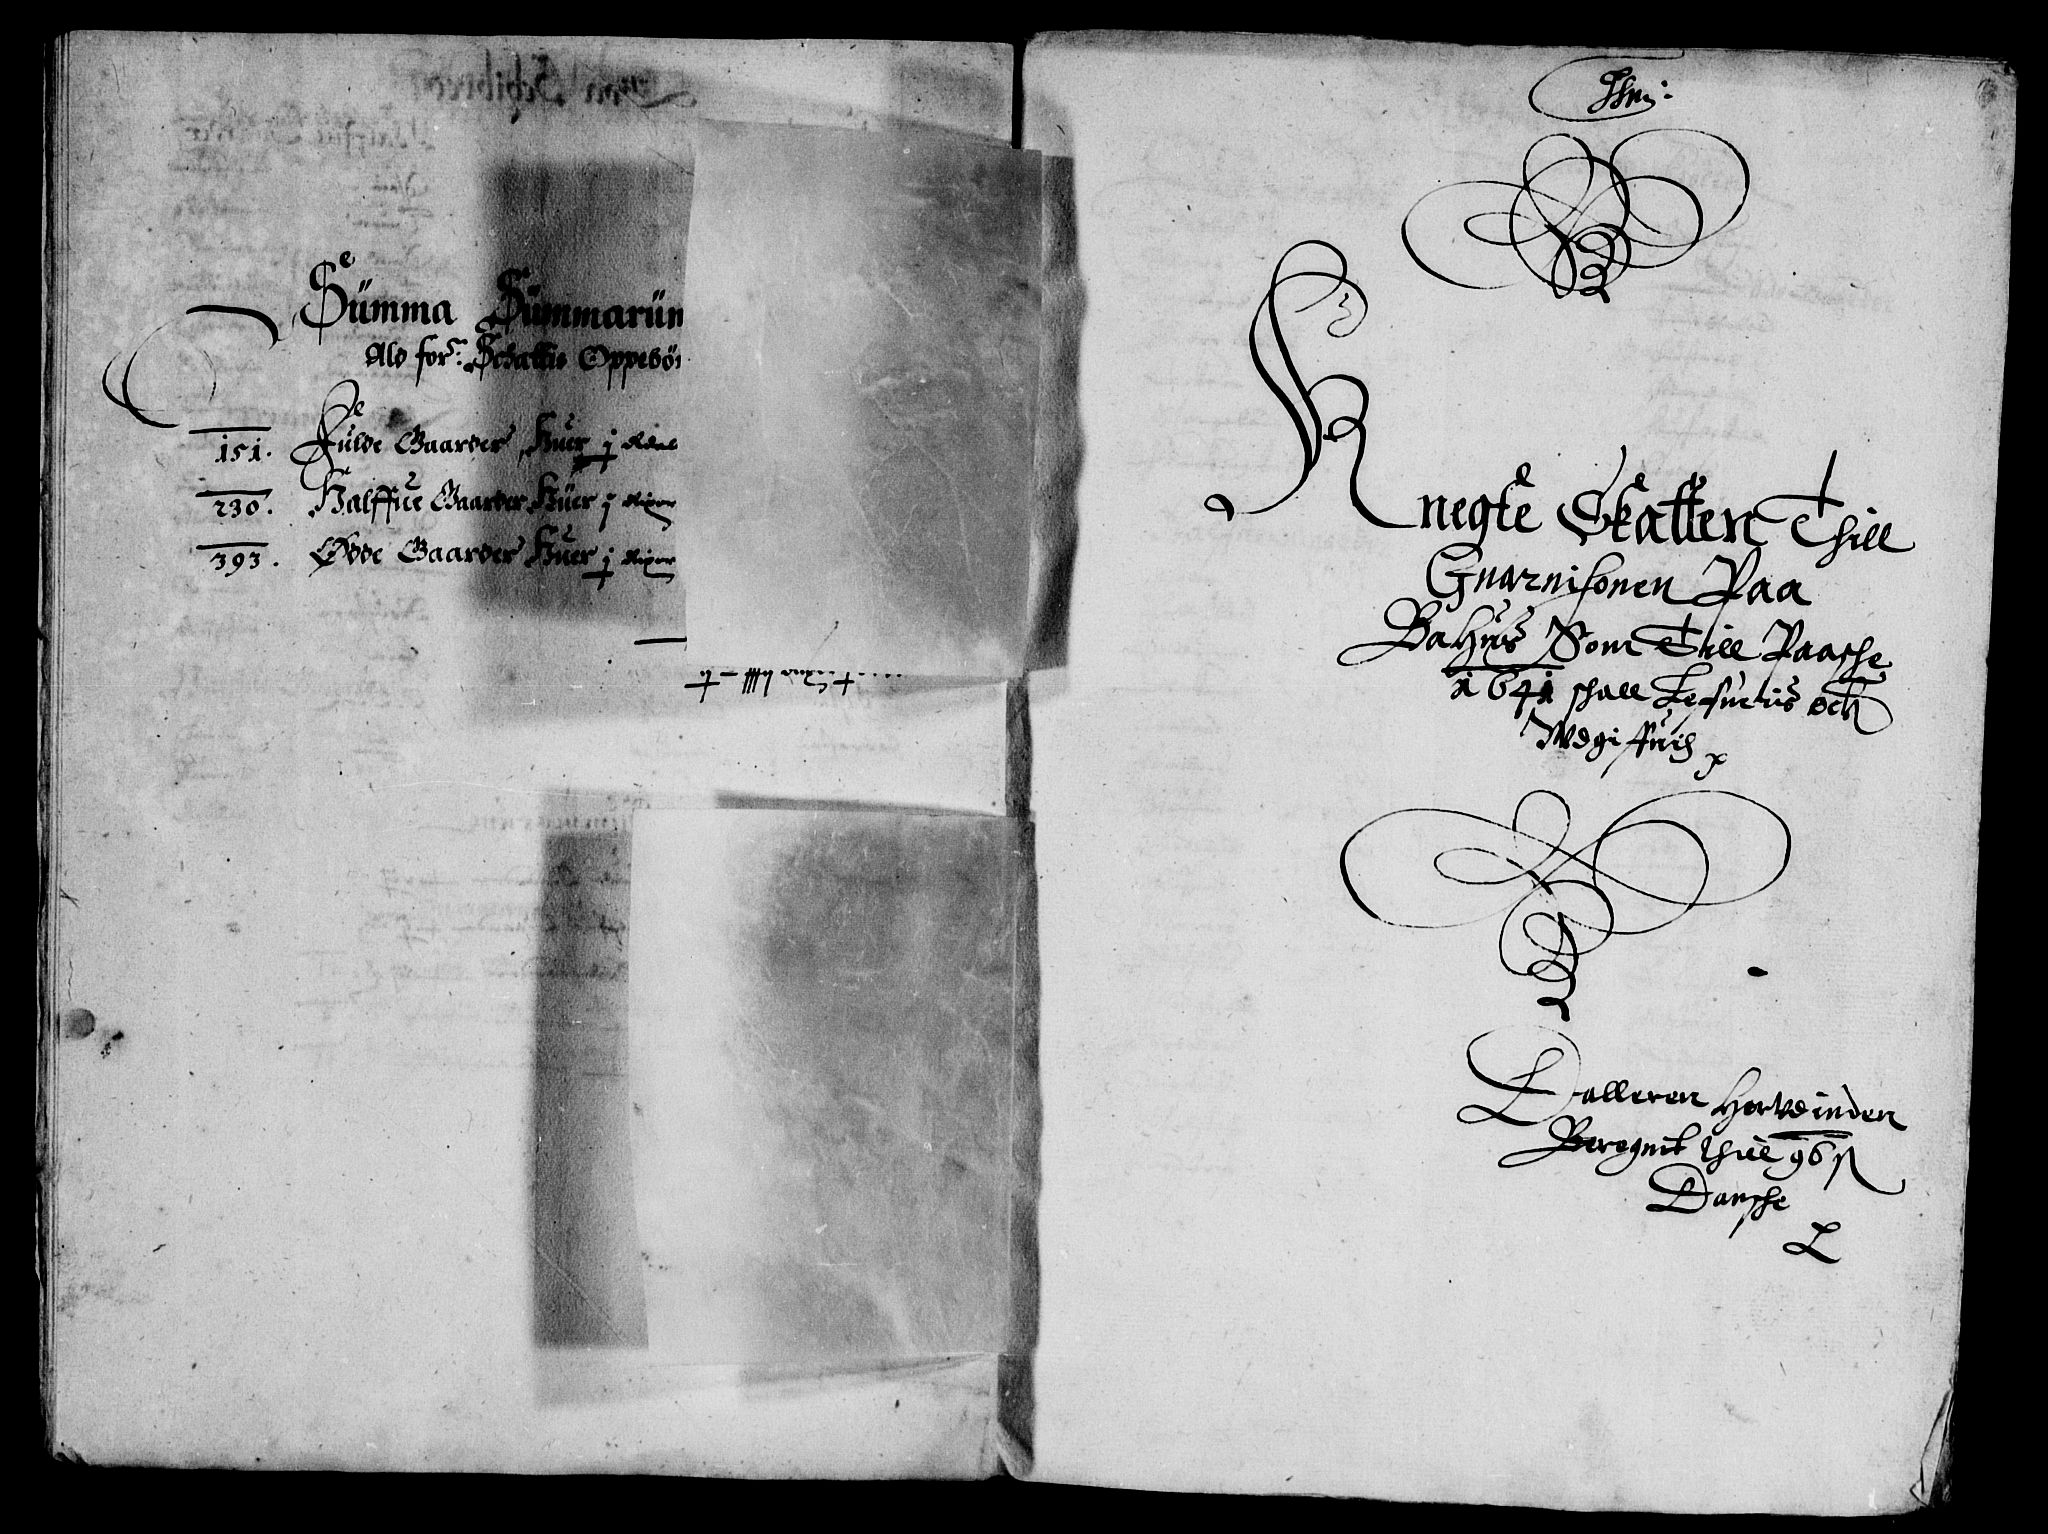 Sümma Sümmarüm
Als for: Schattis Oppebör
151. Fulde Gaarder Huer j
230. Halffue Gaarder Huer j
393. Øde Gaarder Huer j
Knegte Skatten Thill
Guarnisonen Paa
Bahus Som Till Paasche
1641 schall Lefueris och
Wdgiffuis
Dalleren Herudinden
Beregnit thill 96 ß
Dansche